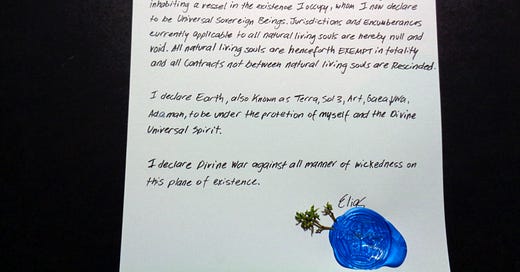 inhabiting a vessel in the existence I occupy, whom I now declare
to be Universal Sovereign Beings. Jurisdictions and Encumberances
currently applicable to all natural living souls are hereby null and
void. All natural living souls are henceforth EXEMPT in totality
and all Contracts not between natural living souls are Rescinded.
I declare Earth, also Known as Terra, Sol 3, Art, Gaea,
Adaman, to be under the protetion of myself and the Divine
Universal Spirit.
I declare Divine War against all manner of wickedness on
this plane of existence.